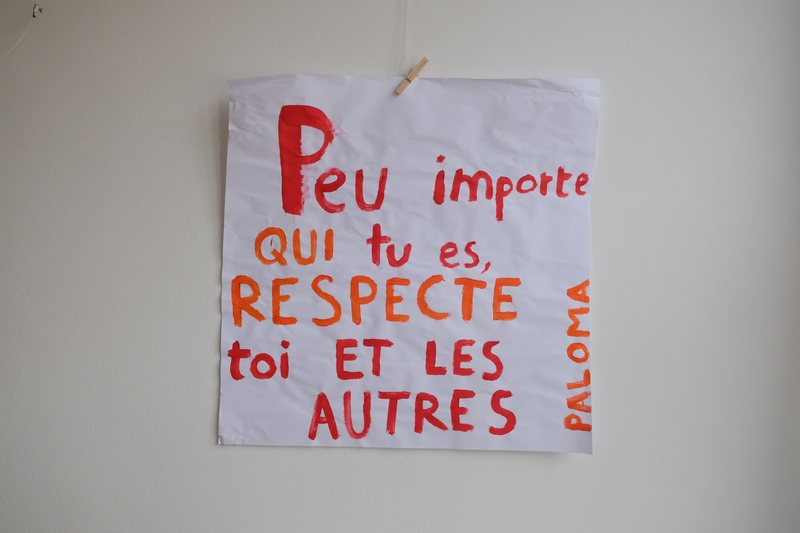 Peu importe
QUI tu es,
RESPECTE
toi ET LES
AUTRES
PALOMA